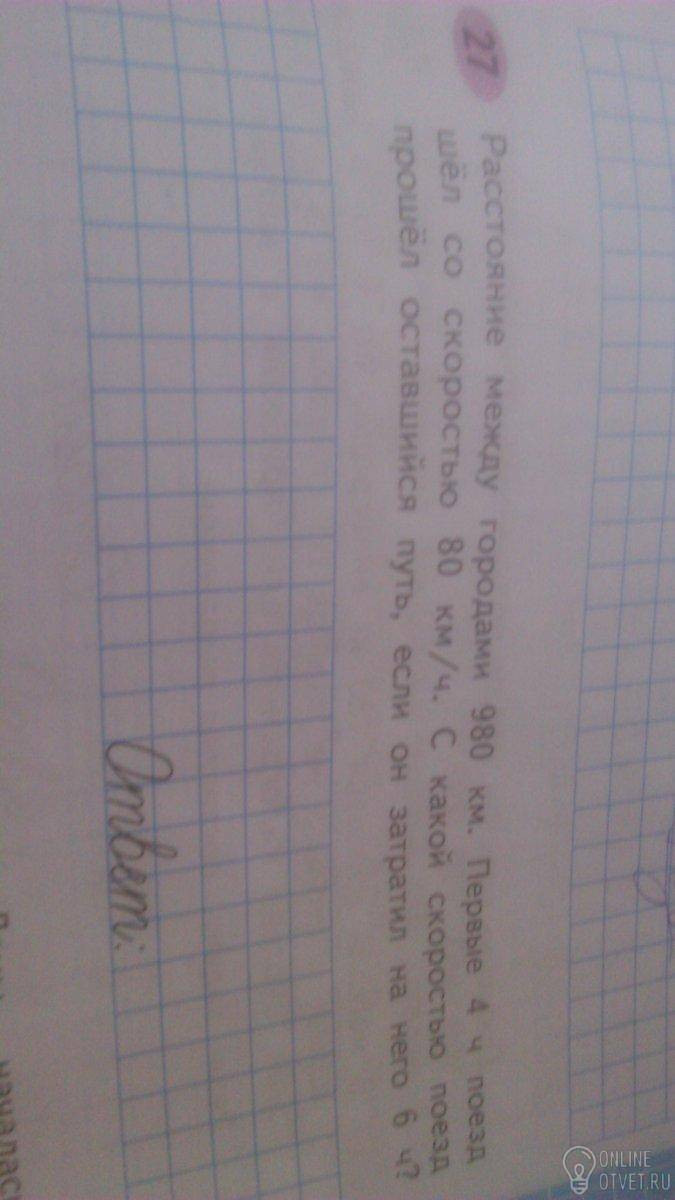 27 Расстояние между городами 980 км. Первые 4 ч поезд
шёл со скоростью 80 км/ч. С какой скоростью поезд
прошёл оставшийся путь, если он затратил на него 6 ч?
Ответ:
началась
ONLINE
OTVET.RU